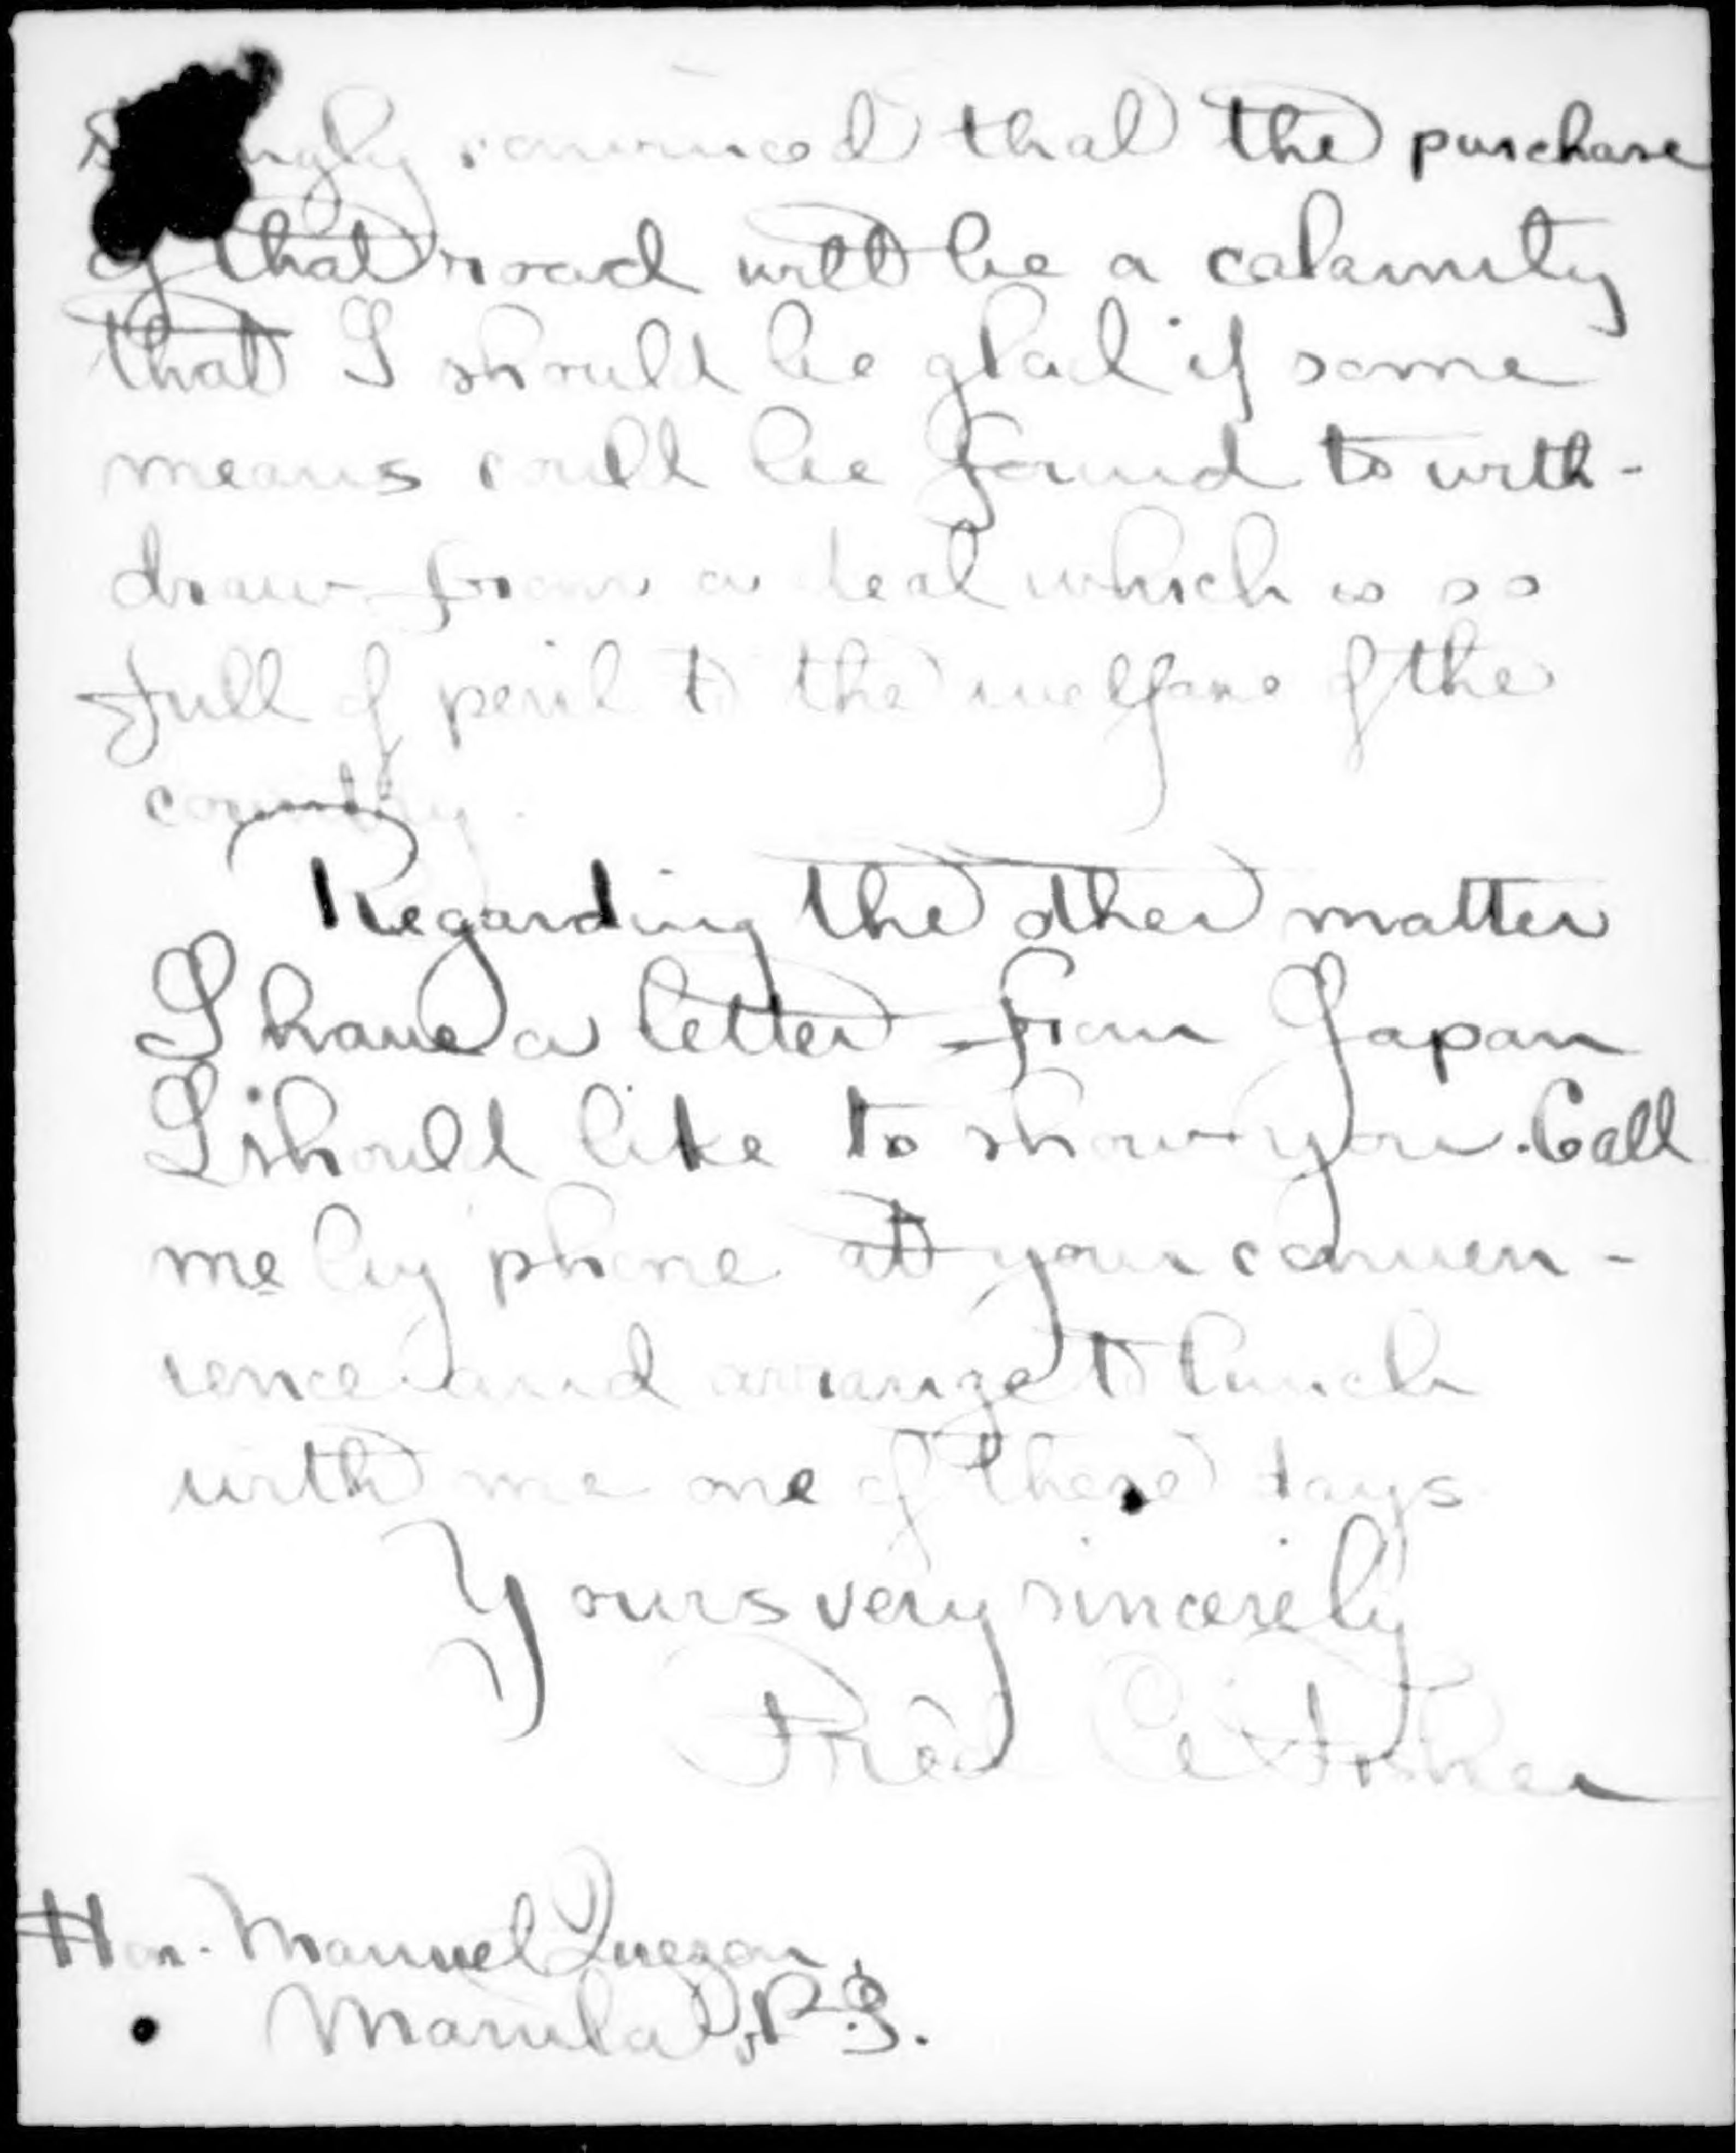 convinced that the purchase
of that road will be a calamity
that I should be glad if some
means could be found to with-
draw from a deal which is so
full of peril to the welfare of the
country.
Regarding the other matter
I have a letter from Japan
I should like to show you. Call
me by phone at your conven-
ience and arrange to lunch
with me one of these days
Yours very sincerely
Fred C. Fisher
Hon. Manuel Quezon,
Manila, P.I.